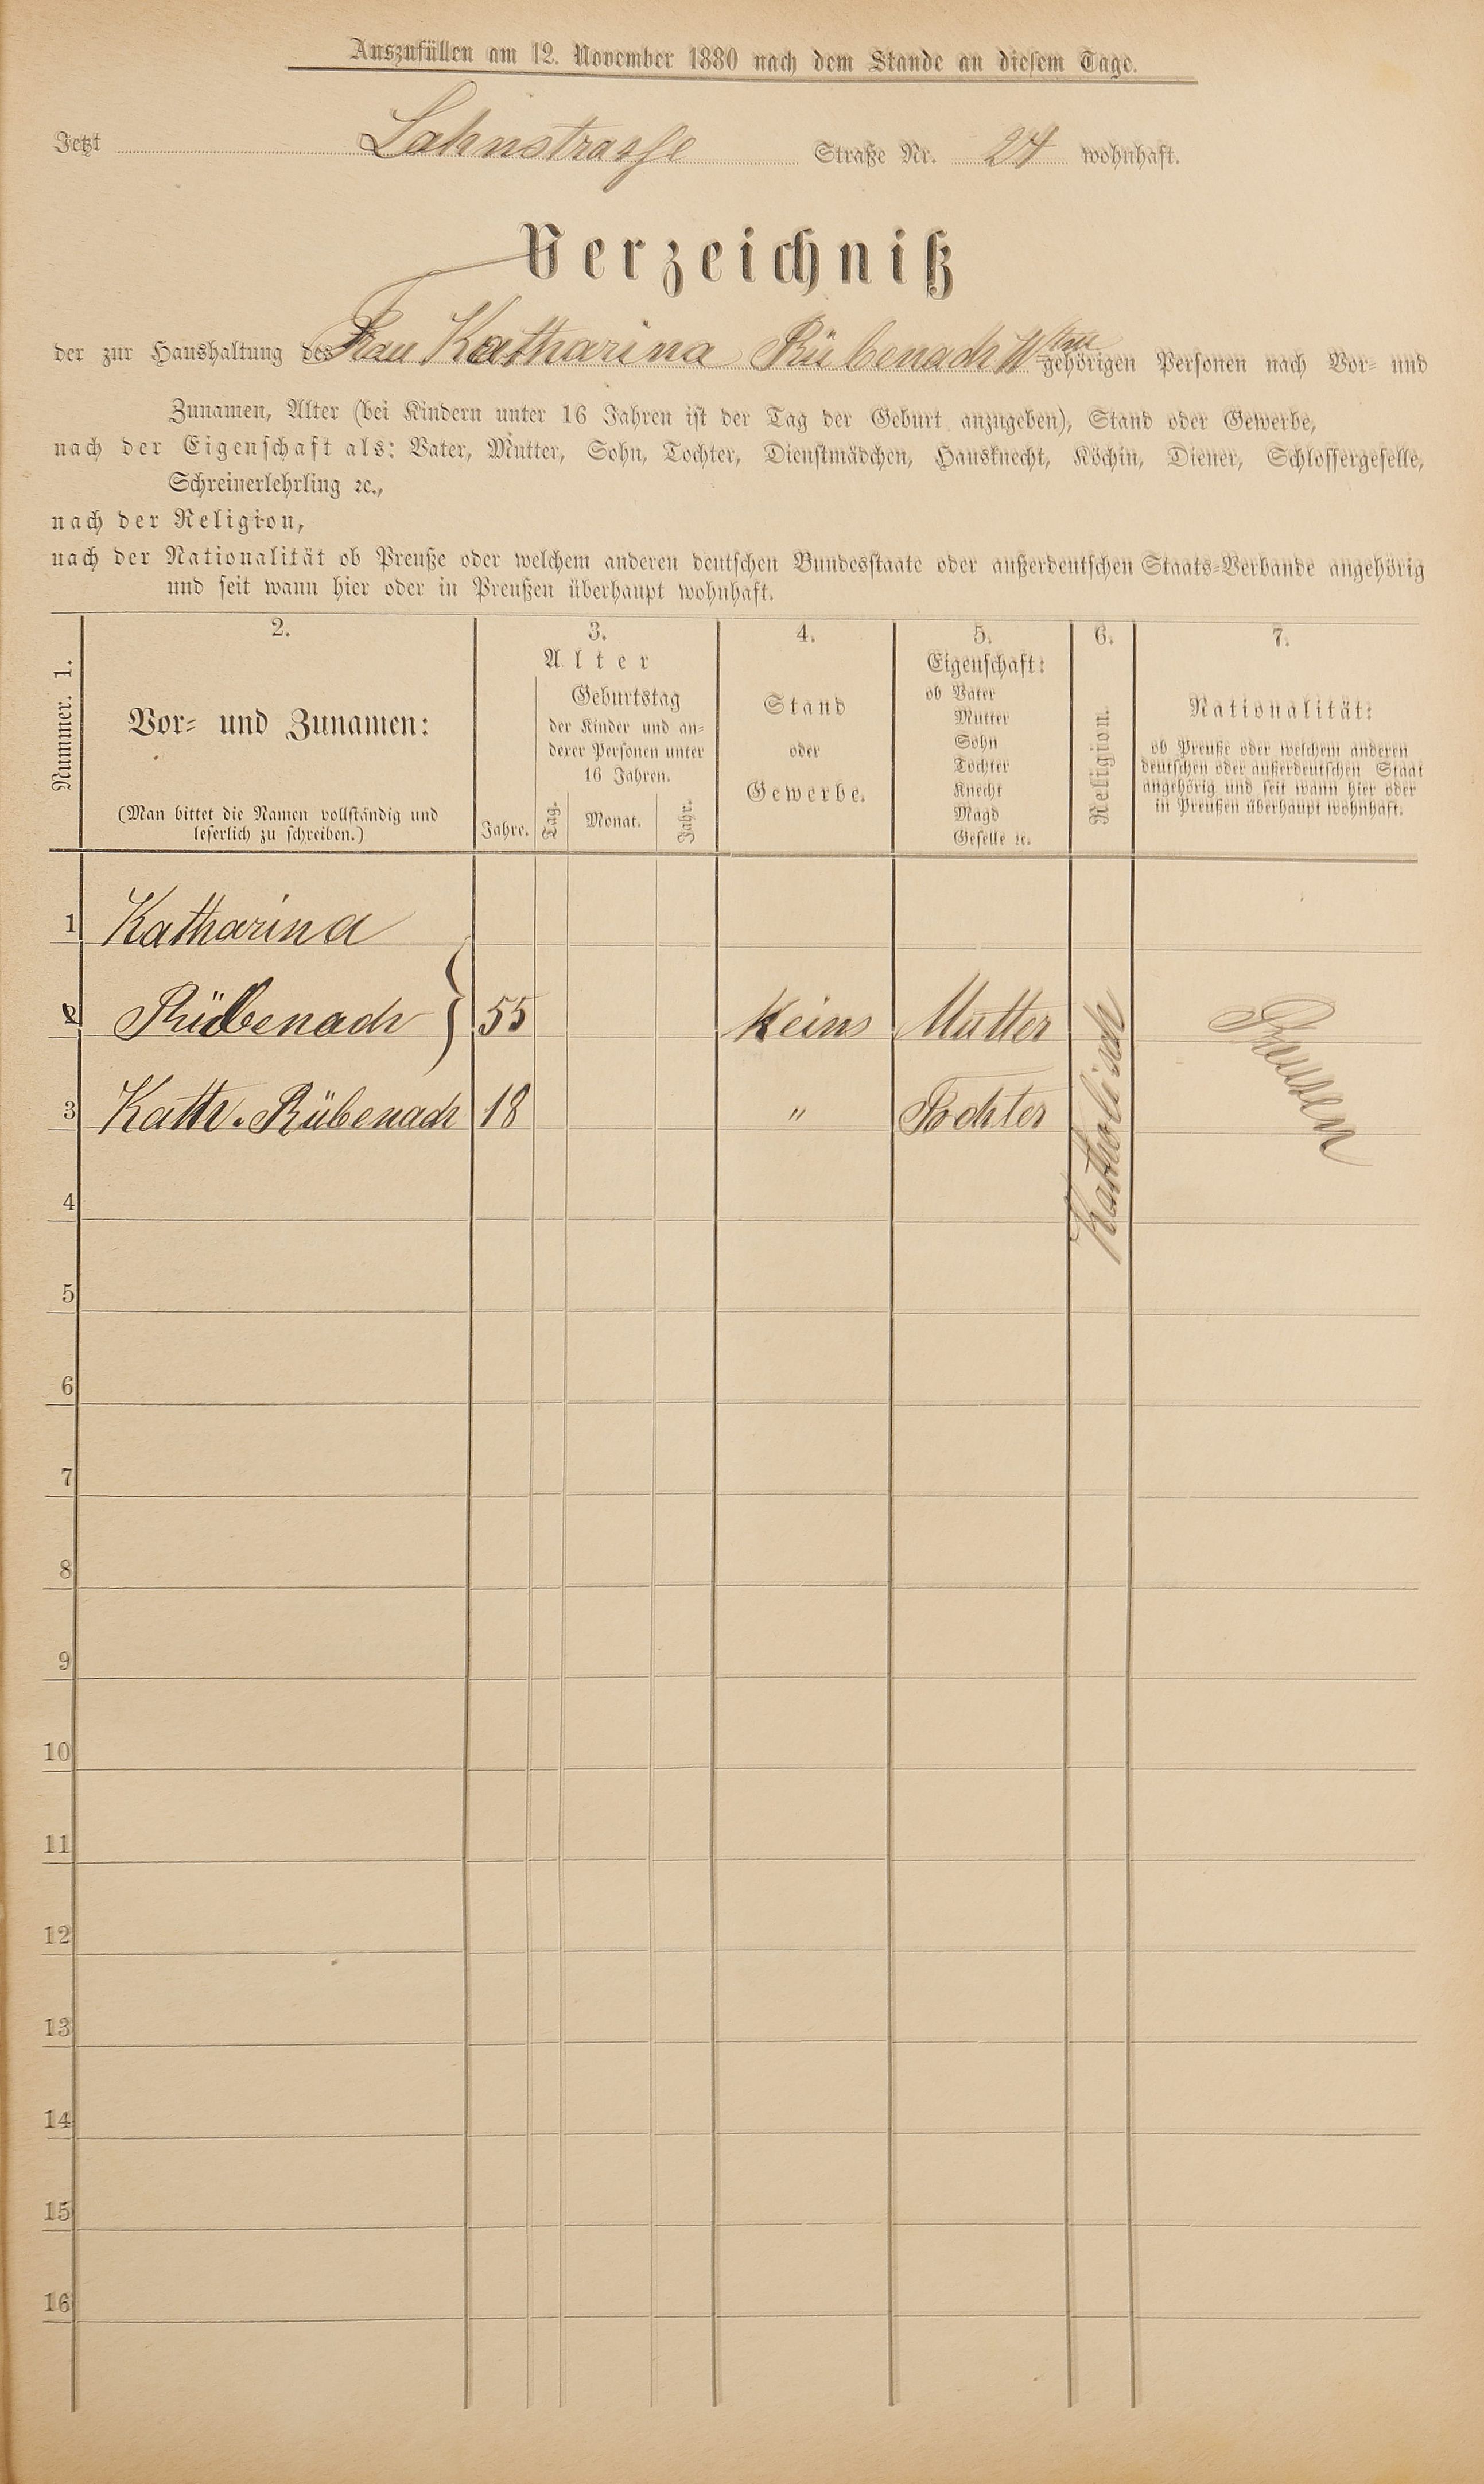 Auszufüllen am 12. November 1880 nach dem Stande an diesem Tage.
Jetzt Lahnstrasse Straße Nr. 24 wohnhaft.
Verzeichniß
der zur Haushaltung des Frau Katharina Rübenach Wttw gehörigen Personen nach Vor= und
Zunamen, Alter (bei Kindern unter 16 Jahren ist der Tag der Geburt anzugeben), Stand oder Gewerbe,
nach der Eigenschaft als: Vater, Mutter, Sohn, Tochter, Dienstmädchen, Hausknecht, Köchin, Diener, Schlossergeselle,
Schreinerlehrling ꝛc.,
nach der Religion,
nach der Nationalität ob Preuße oder welchem anderen deutschen Bundesstaate oder außerdeutschen Staats=Verbande angehörig
und seit wann hier oder in Preußen überhaupt wohnhaft.
Nummer. 1.
2.
Vor= und Zunamen:
(Man bittet die Namen vollständig und
leserlich zu schreiben.)
3.
Alter
Jahre.
Geburtstag
der Kinder und an=
derer Personen unter
16 Jahren.
Tag. Monat. Jahr.
4.
Stand
oder
Gewerbe.
5.
Eigenschaft:
ob Vater
Mutter
Sohn
Tochter
Knecht
Magd
Geselle ꝛc.
6.
Religion.
7.
Nationalität:
ob Preuße oder welchem anderen
deutschen oder außerdeutschen Staat
angehörig und seit wann hier oder
in Preußen überhaupt wohnhaft.
1 Katharina
2 Rübenach } 55 Keins Mutter
3 Kath. Rübenach 18 " Tochter
Katholisch
Preusen
4
5
6
7
8
9
10
11
12
13
14
15
16